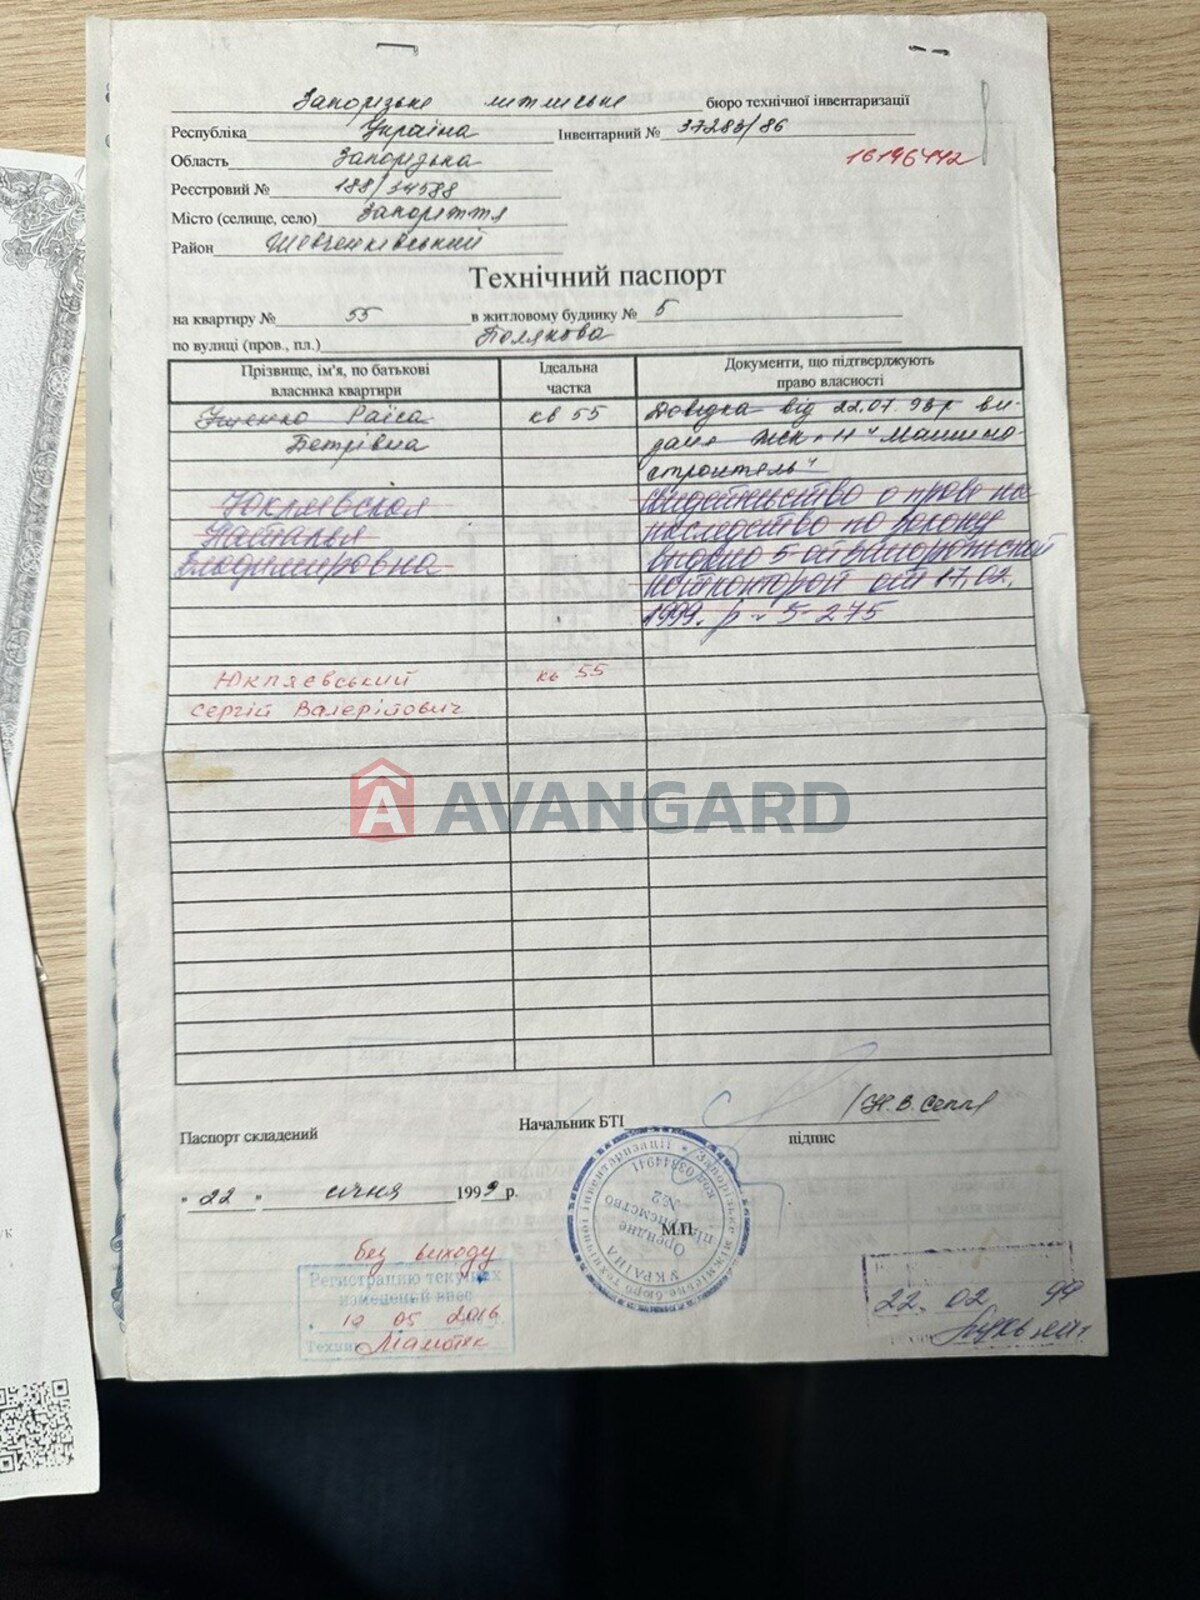 Запорізьке міжміське бюро технічної інвентаризації
Республіка Україна Інвентарний № 37283/86
Область Запорізька 16196442
Реєстровий № 188/34588
Місто (селище, село) Запоріжжя
Район Шевченківський
Технічний паспорт
на квартиру № 55 в житловому будинку № 5
по вулиці (пров., пл.) Полякова
Прізвище, ім'я, по батькові власника квартири
Ідеальна частка
Документи, що підтверджують право власності
Раїса кв 55 Довідка від 22.01.98р ви-
Петрівна дана ЖСК-11 "Машино-
строитель"
Юкляевская свидетельство о праве на
Наталья наследство по закону
Владимировна выдано 5-ой запорожской
нотконторой от 17,02.
1999. р № 5-275
Юкляєвський кв 55
Сергій Валерійович
AVANGARD
Начальник БТІ /Н.В.
Паспорт складений підпис
"22" січня 1999 р.
М.П.
УКРАЇНА Запорізьке міжміське бюро технічної інвентаризації
код 03344941
Орендне підприємство
№2
без выходу
Регистрацию текущих
изменений внес
12 05 2016
Техник
22. 02 99